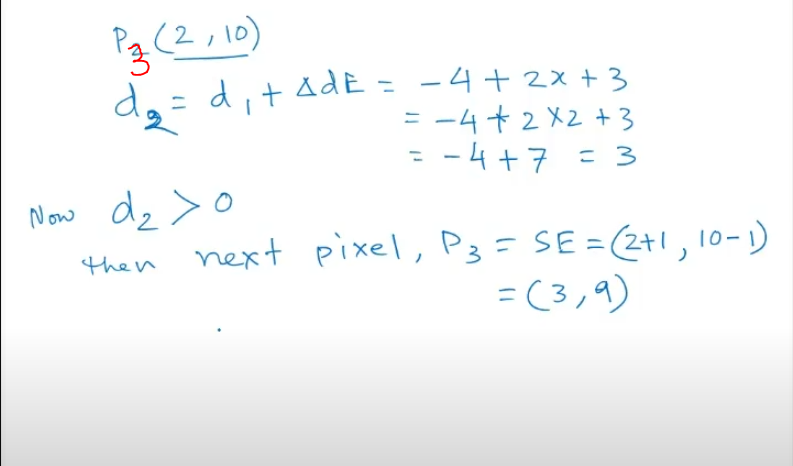 P3 (2, 10)
d2 = d1 + ΔdE = -4 + 2x + 3
= -4 + 2 x 2 + 3
= -4 + 7 = 3
Now d2 > 0
then next pixel, P3 = SE = (2+1, 10-1)
= (3, 9)